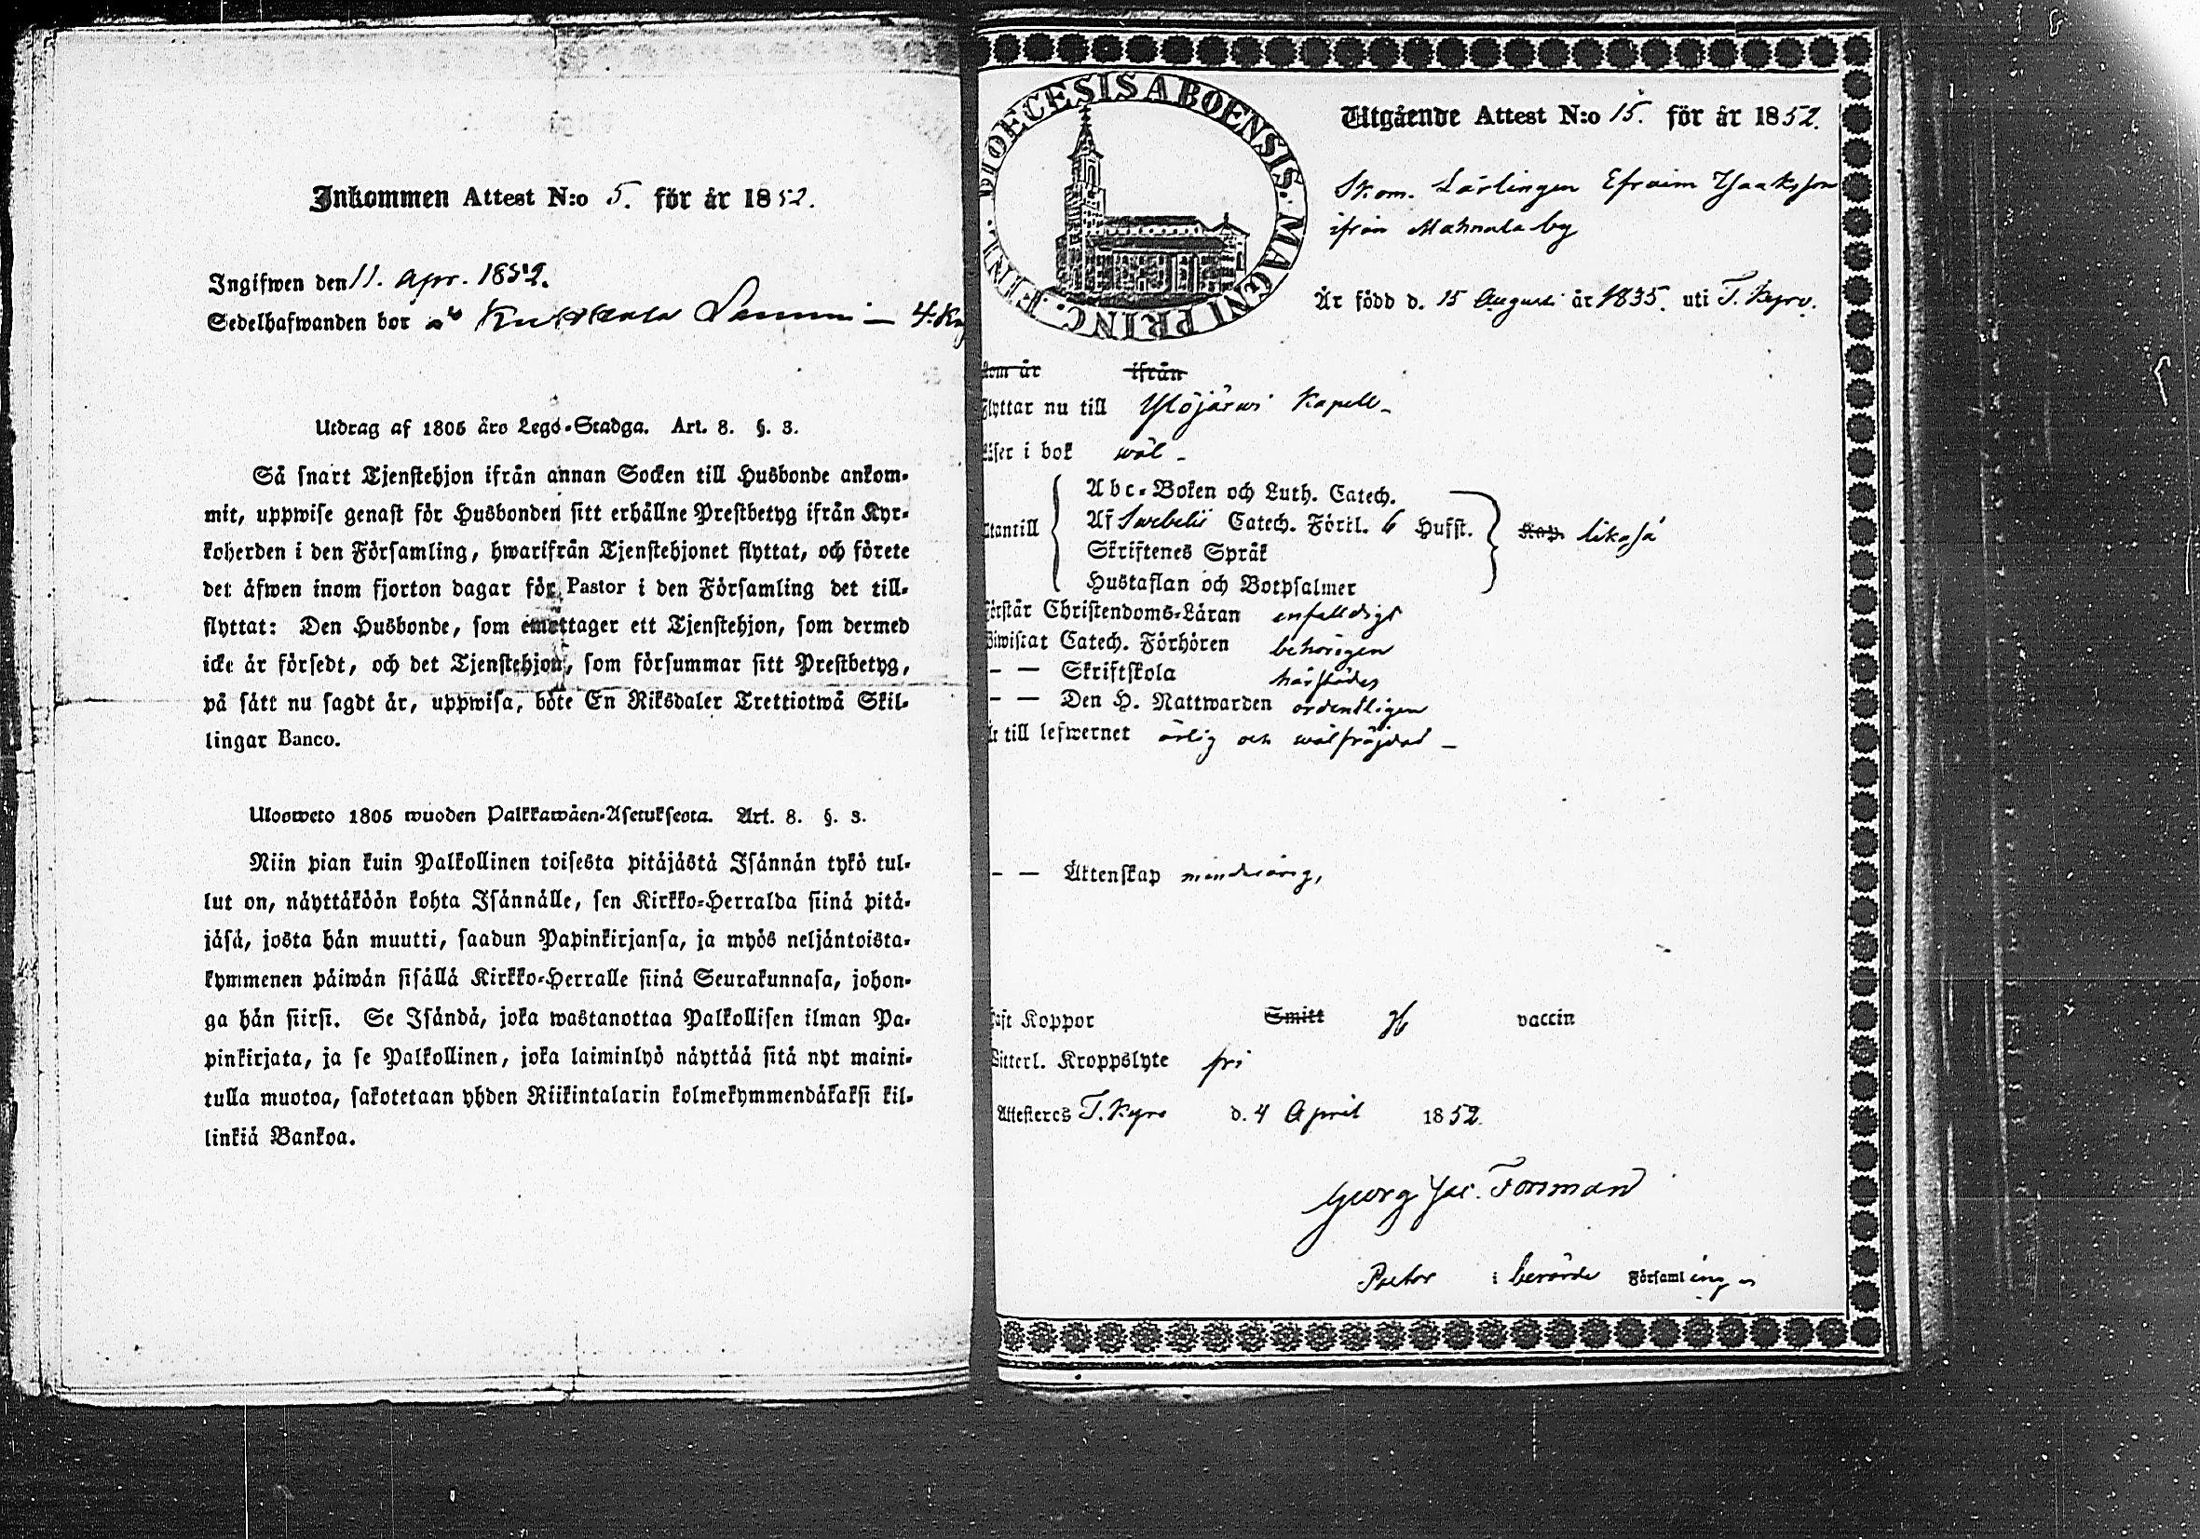 Inkommen Attest N:o 5. för år 1852.
Ingifwen den 11. Apr. 1852.
Sedelhafwanden bor
Utdrag af 1805 års Lego-Stadga. Art. 8. §. 3.
Så snart Tjenstehjon ifrån annan Socken till Husbonde ankom-
mit, uppwise genast för Husbonden sitt erhållne Prestbetyg ifrån Kyr-
koherden i den Församling, hwarifrån Tjenstehjonet flyttat, och förete
det äfwen inom fjorton dagar för Pastor i den Församling det till-
flyttat: Den Husbonde, som emottager ett Tjenstehjon, som dermed
icke är försedt, och det Tjenstehjon, som försummar sitt Prestbetyg,
på sätt nu sagdt är, uppwisa, böte En Riksdaler Trettiotwå Skil-
lingar Banco.
Ulosweto 1805 wuoden Palkkawäen-Asetuksesta. Art. 8. §. 3.
Niin pian kuin Palkollinen toisesta pitäjästä Isännän tykö tul-
lut on, näyttäköön kohta Isännälle, sen Kirkko-Herralda siinä pitä-
jäsä, josta hän muutti, saadun Papinkirjansa, ja myös neljäntoista-
kymmenen päiwän sisällä Kirkko-Herralle siinä Seurakunnasa, johon-
ga hän siirsi. Se Isändä, joka wastanottaa Palkollisen ilman Pa-
pinkirjata, ja se Palkollinen, joka laiminlyö näyttää sitä nyt maini-
tulla muotoa, sakotetaan yhden Riikintalarin kolmekymmendäkaksi kil-
linkiä Bankoa.
DIOECESIS ABOENSIS. MAGNI PRINC. FINL.
Utgående Attest N:o 15. för år 1852.
Skom. Lärlingen Efraim Isaksson
ifrån Mahnala by
Är född d. 15 Augusti år 1835. uti T. Kyro.
kom år ifrån
Flyttar nu till Ylöjärwi Kapell
Läser i bok wäl
Abc-Boken och Luth. Catech.
Utantill Af Swebelii Catech. Förkl. 6 Hufst. Kap. likaså
Skriftenes Språk
Hustaflan och Botpsalmer
Förstår Christendoms-Läran enfalldigt
Biwistat Catech. Förhören behörigen
– – Skriftskola härstädes
– – Den H. Nattwarden ordentligen
Är till lefwernet ärlig och wälfrägdad
– – Äktenskap minderårig,
Haft Koppor Smitt vaccin
Witterl. Kroppslyte fri
Attesteres T. Kyro d. 4 April 1852.
Georg Jac. Forsman
Pastor i berörde Församling